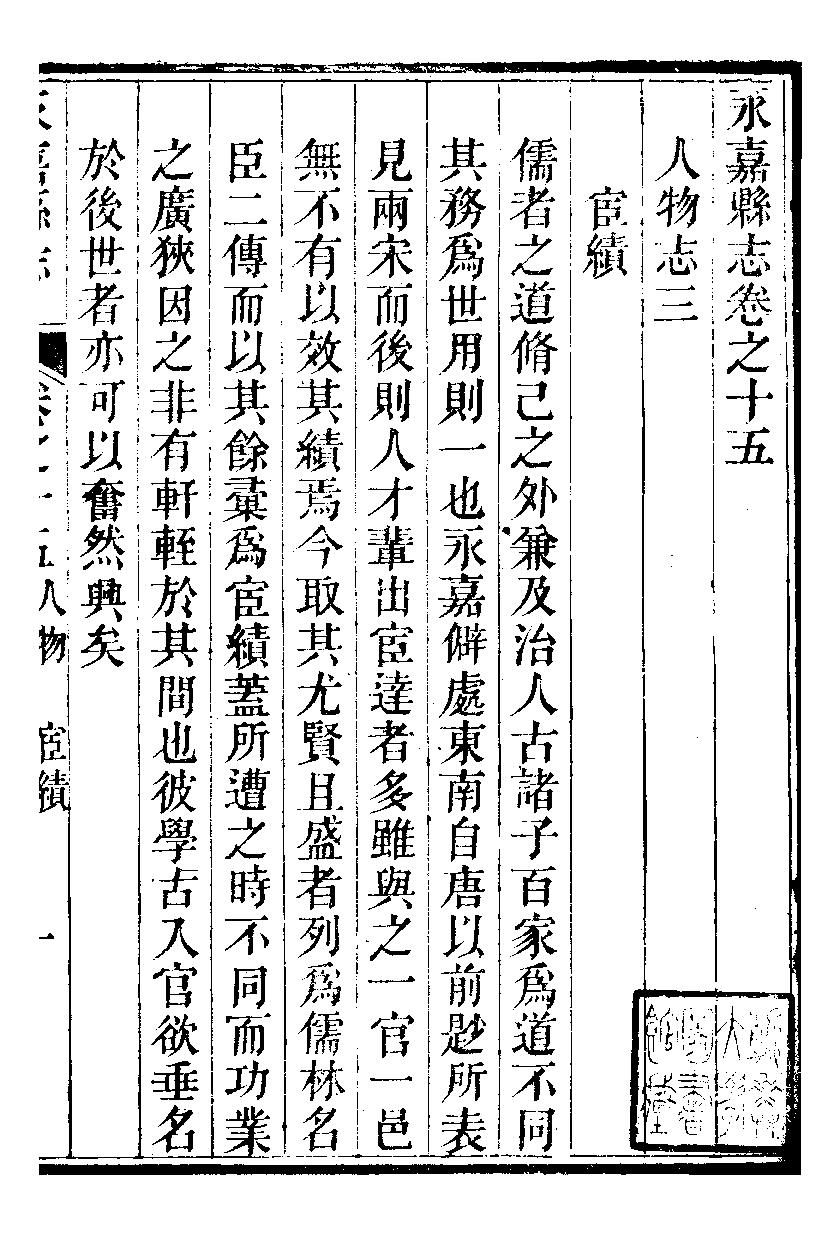 永嘉縣志卷之十五
人物志三
宦績
儒者之道脩己之外兼及治人古諸子百家爲道不同
其務爲世用則一也永嘉僻處東南自唐以前尟所表
見兩宋而後則人才輩出宦達者多雖與之一官一邑
無不有以效其績焉今取其尤賢且盛者列爲儒林名
臣二傳而以其餘彚爲宦績蓋所遭之時不同而功業
之廣狹因之非有軒輊於其間也彼學古入官欲垂名
於後世者亦可以奮然興矣
永嘉縣志 卷之十五人物 宦績 一